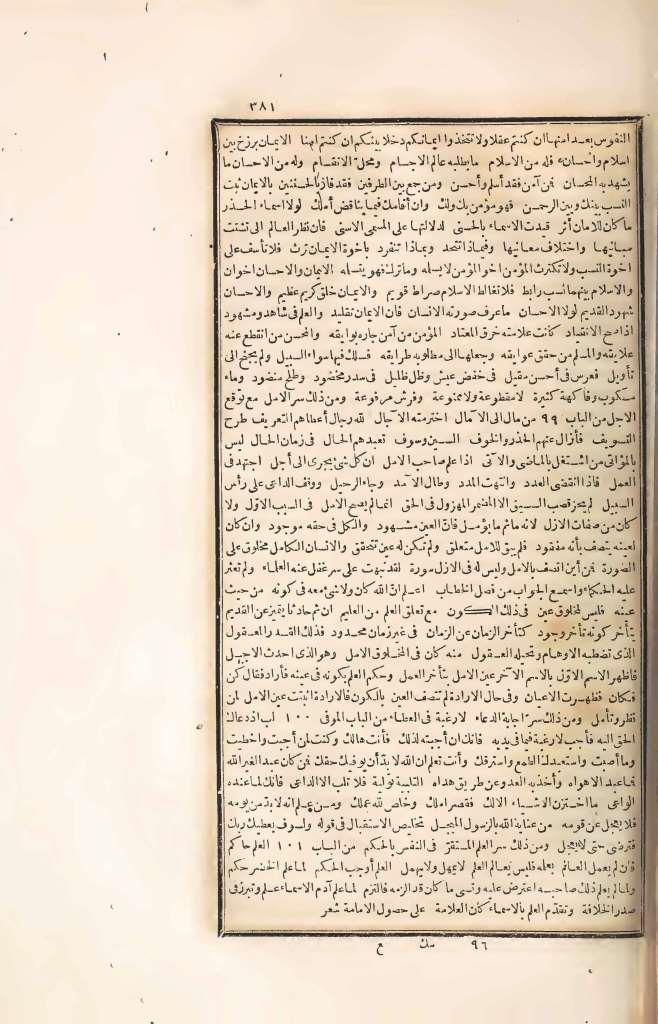 ٣٨١
النفوس بعد امنها ان كنتم عقلا ولا تتخذوا ايمانكم دخلا بينكم ان كنتم امنا الايمان برزخ بين
اسلام واحسان فله من الاسلام ما يطلبه عالم الاجسام ومحل الانقسام وله من الاحسان ما
يشهد به المحسان فمن آمن فقد أسلم وأحسن ومن جمع بين الطرفين فقد فاز بالحسنيين بالايمان ثبت
النسب بينك وبين الرحمن فهو مؤمن بك ولك وان أقامك فيما يناقض أملك لولا اسماء الحذر
ما كان للامان أثر قيدت الاسماء بالحسنى لدلالتها على المسمى الاسنى فان نظر العالم الى تشتت
مبانيها واختلاف معانيها وفيما ذا تتحد وبما ذا تنفرد باخوة الايمان ترث فلا تأسف على
اخوة النسب ولا تكترث المؤمن اخو المؤمن لا يسلمه وما ترك فهو يتسلمه الايمان والاحسان اخوان
والاسلام بينهما نسب رابط فلا تغالط الاسلام صراط قويم والايمان خلق كريم عظيم والاحسان
شهود القديم لولا الاحسان ما عرف صورته الانسان فان الايمان تقليد والعلم فى شاهد ومشهود
اذا صح الانقياد كانت علامته خرق المعتاد المؤمن من آمن جاره بوايقه والمحسن من انقطع عنه
علايقه والمسلم من حقق عوايقه وجعلها الى مطلوبه طرايقه فسلك فيها سواء السبيل ولم يجنح الى
تأويل فعرس فى أحسن مقيل فى خفض عيش وظل ظليل فى سدر مخضود وطلح منضود وماء
مسكوب وفاكهة كثيرة لا مقطوعة ولا ممنوعة وفرش مرفوعة ومن ذلك سر الامل مع توقع
الاجل من الباب ٩٩ من مال الى الآمال اخترمته الآجال لله رجال أعطاهم التعريف طرح
التسويف فأزال عنهم الحذر والخوف السين وسوف تعبدهم الحال فى زمان الحال ليس
بالمؤاتى من اشتغل بالماضى والآتى اذا علم صاحب الامل ان كل شئ يجرى الى أجل اجتهد فى
العمل فاذا انقضى العدد وانتهت المدد وطال الامد وجاء الرحيل ووقف الداعى على رأس
السبيل لم يحز قصب السبق الا المضمر المهزول فى الحق انما لم يصح الامل فى السبب الاول ولا
كان من صفات الازل لانه ما ثم ما يؤمل فان العين مشهود والكل فى حقه موجود وان كان
لعينه يتصف بأنه مفقود فلم يبق للامل متعلق ولم تكن له عين تتحقق والانسان الكامل مخلوق على
الصورة فمن أين اتصف بالامل وليس له فى الازل سورة لقد نبهت على سر غفل عنه العلماء ولم تعثر
عليه الحكماء واسمع الجواب من فصل الخطاب اعلم ان الله كان ولا شئ معه فى كونه من حيث
عينه فليس لمخلوق عين فى ذلك الكون مع تعلق العلم من العليم ان ثم حادثا يتميز عن القديم
يتأخر كونه تأخر وجود كتأخر الزمان عن الزمان فى غير زمان محدود فذلك القدر المعقول
الذى تضبطه الاوهام وتحيله العقول منه كان فى المخلوق الامل وهو الذى احدث الاجل
فاظهر الاسم الاول بالاسم الآخر عين الامل بتأخر العمل وحكم العلم بكونه فى عينه فأراد فقال كن
فكان فظهرت الاعيان وفى حال الارادة لم تتصف العين بالكون فالارادة اثبتت عين الامل لمن
نظر وتأمل ومن ذلك سر اجابة الدعاء لا رغبة فى العطاء من الباب الموفى ١٠٠ اب اذ دعاك
الحق اليه فأجب لا رغبة فيما فى يديه فانك ان أجبته لذلك فأنت هالك وكنت لمن أجبت وأخطيت
وما أصبت واستعبدك الطامع واسترقك وأنت تعلم ان الله لا بد أن يوفيك حقك فمن كان عبد الغير الله
فما عبد الا هواه وأخذ به العدو عن طريق هداه التلبية تولية فلا تلب الا الداعى فانك لما عنده
الواعى ما اختزن الاشياء الا لك فقصر املك وخلص لله عملك ومن علم انه لا بد من يومه
فلا يعجل عن قومه من عناية الله بالرسول المبجل تخليص الاستقبال فى قوله ولسوف يعطيك ربك
فترضى حتى لا يعجل ومن ذلك سر العلم المستقر فى النفس بالحكم من الباب ١٠١ العلم حاكم
فان لم يعمل العالم بعلمه فليس بعالم العلم لا يمهل ولا يهمل العلم أوجب الحكم لما علم الخضر حكم
ولما لم يعلم ذلك صاحبه اعترض عليه ونسى ما كان قد الزمه فالتزم لما علم آدم الاسماء علم وتبرز فى
صدر الخلافة وتقدم العلم بالاسماء كان العلامة على حصول الامامة شعر
٩٦ مك ع